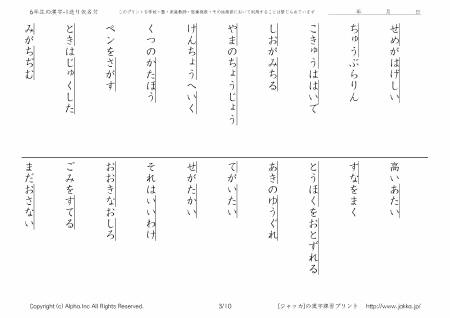 6年生の漢字-1送り仮名付
このプリントを学校・塾・家庭教師・医療機関・その他施設において利用することは禁じられています
年 月 日
せめがはげしい
ちゅうぶらりん
こきゅうははいて
しおがみちる
やまのちょうじょう
けんちょうへいく
くつのかたほう
ペンをさがす
ときはじゅくした
みがちぢむ
高いあたい
すなをまく
とうほくをおとずれる
あきのゆうぐれ
てがいたい
せがたかい
それはいいわけ
おおきなおしろ
ごみをすてる
まだおさない
Copyright (c) Alpha.Inc All Rights Reserved.
3/10
[ジャッカ]の漢字練習プリント http://www.jakka.jp/